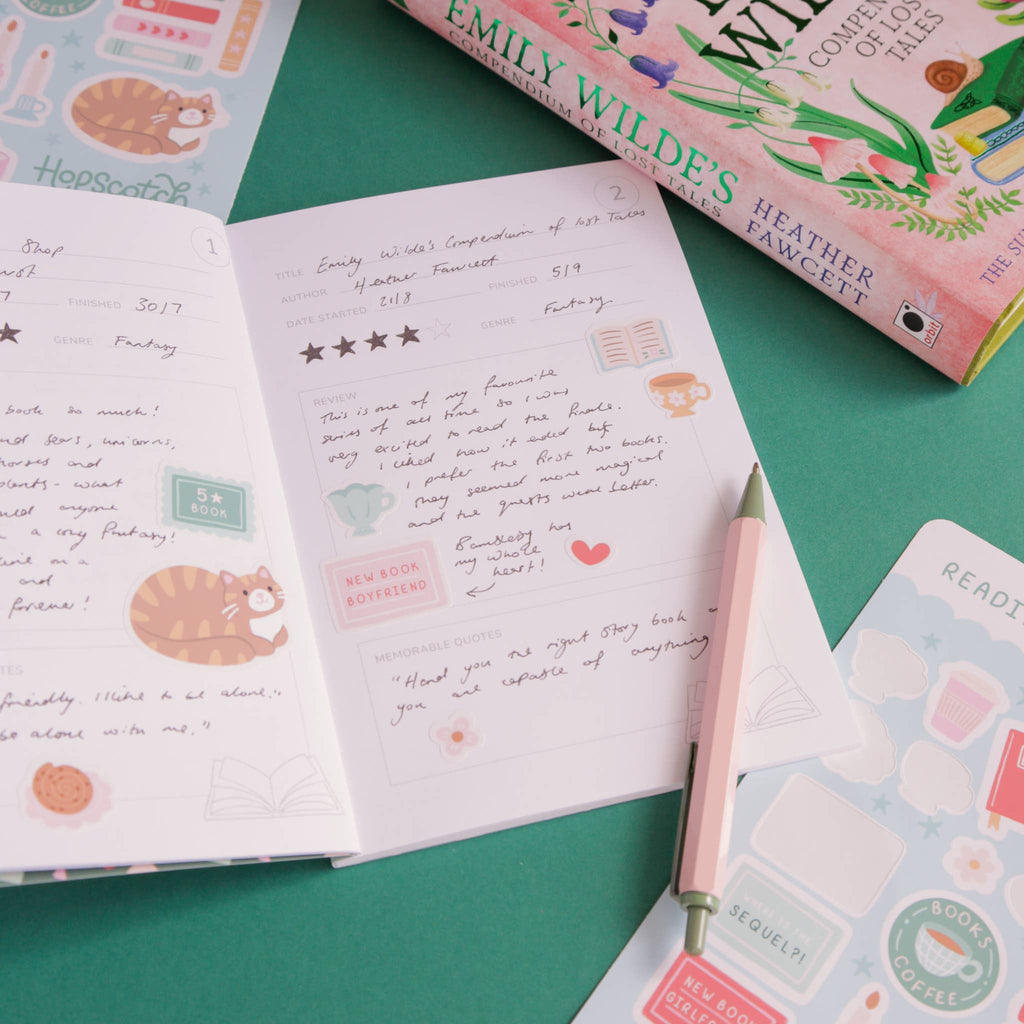 HOPSCOTCH
EMILY WILDE'S
COMPENDIUM OF LOST TALES
HEATHER
FAWCETT
orbit
COMPENDIUM
OF LOST
TALES
1
Shop
FINISHED 30/7
GENRE Fantasy
book so much!
unicorns,
horses and
plants - what
anyone
a cosy fantasy!
and
forever!
5★
BOOK
friendly. I like to be alone."
be alone with me."
2
TITLE Emily Wilde's Compendium of lost Tales
AUTHOR Heather Fawcett
DATE STARTED 21/8 FINISHED 5/9
GENRE Fantasy
REVIEW
This is one of my favourite
series of all time so I was
very excited to read the finale.
I liked how it ended but
I prefer the first two books.
They seemed more magical
and the quests were better.
Bambleby has
my whole
heart!
NEW BOOK
BOYFRIEND
MEMORABLE QUOTES
"Hand you the right story book
you are capable of anything
SEQUEL?!
BOOKS
COFFEE
NEW BOOK